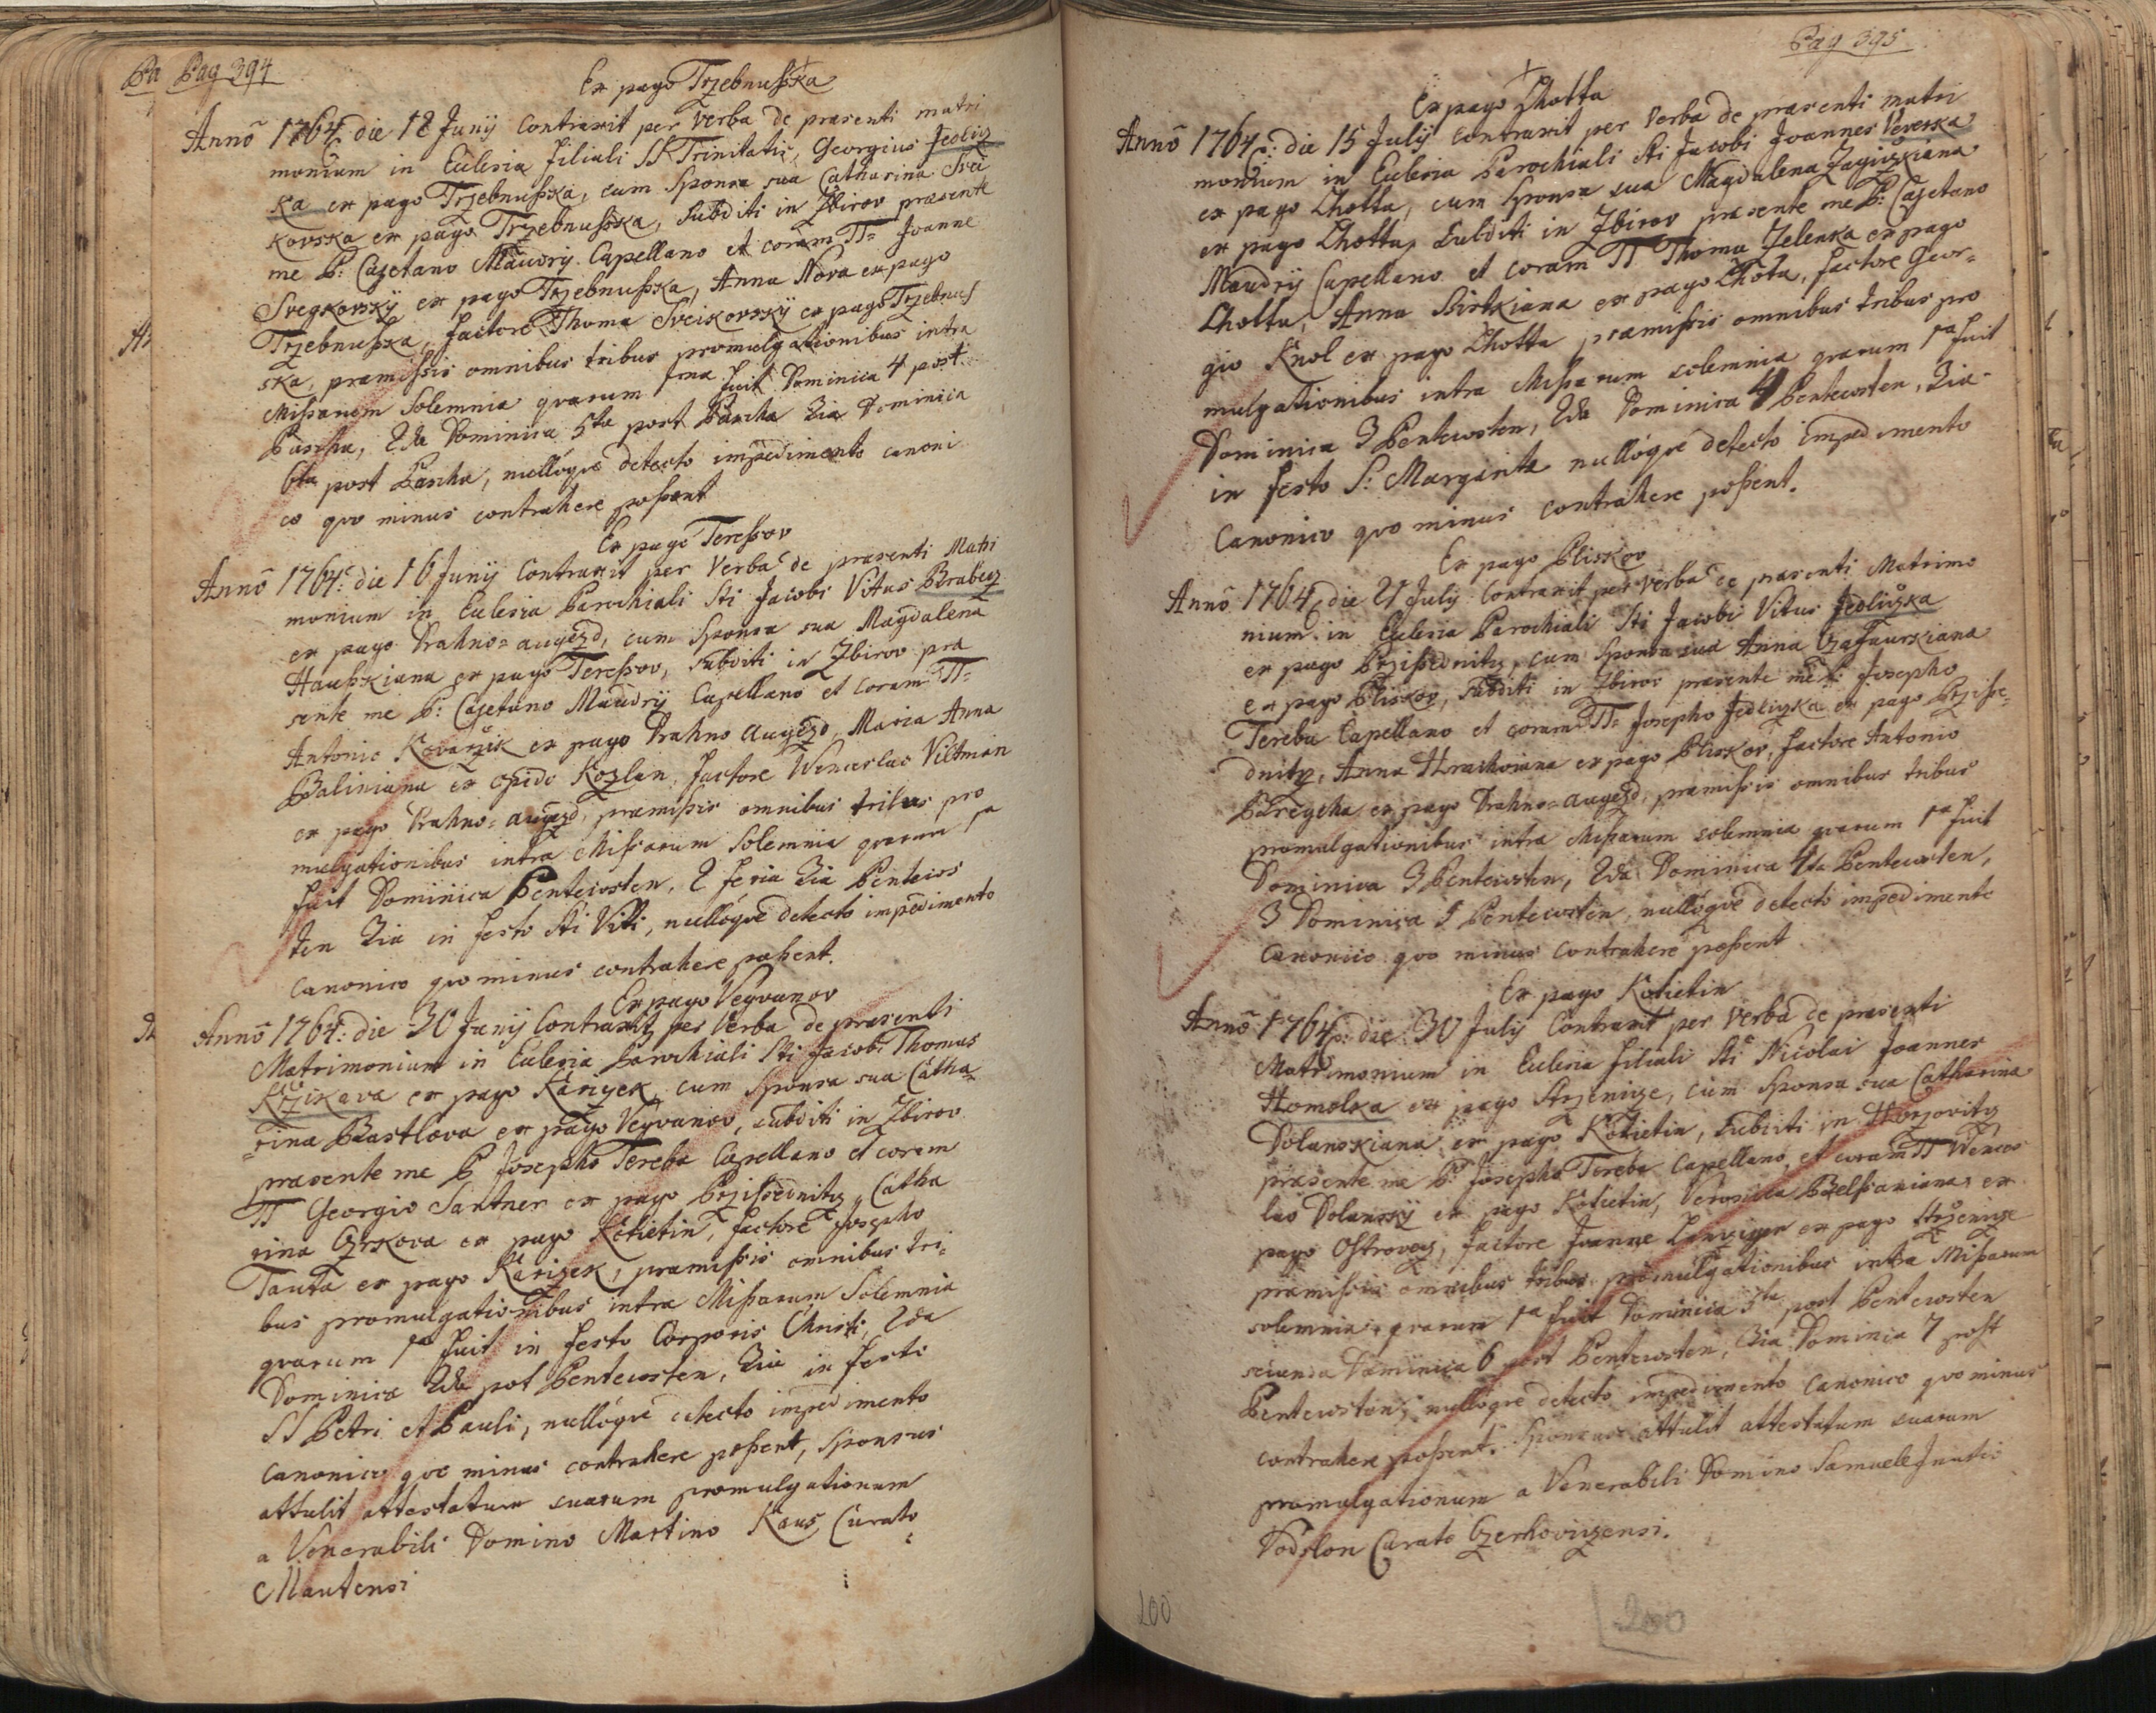 Pa Pag 394
Ex pago Trzebnusska
Anno 1764 die 12 Junij Contraxit per Verba de praesenti matri
monium in Ecclesia filiali SS Trinitatis, Georgius Jedlicz
ka ex pago Trzebnusska, cum Sponsa sua Catharina Svei
kovska ex pago Trzebnusska, subditi in Zbirov praesente
me P: Cajetano Maudry Capellano et coram TT= Joanne
Svegkovsky ex pago Trzebnusska, Anna Nova ex pago
Trzebnusska, factore Thoma Sveikovsky ex pago Trzebnus
ska, praemissis omnibus tribus promulgationibus intra
Missarum Solemnia qvarum 1ma fuit Dominica 4 post
Pascha, 2da Dominica 5ta post Pascha 3ia Dominica
6ta post Pascha, nullóqve detecto impedimento canoni
co qvo minus contrahere possent
Ex pago Teressov
Anno 1764: die 16 Junij Contraxit per Verba de praesenti Matri
monium in Ecclesia Parochiali Sti Jacobi Vitus Brabecz
ex pago Drahno=augezd, cum Sponsa sua Magdalena
Hausskiana ex pago Teressov, subditi in Zbirov prae
sente me P: Cajetano Maudry Capellano et coram TT=
Antonio Kovarzik ex pago Drahno augezd, Maria Anna
Baliniana ex opido Kozlan, factore Wenceslao Viltman
ex pago Drahno=augezd, praemissis omnibus tribus pro
mulgationibus intra Missarum Solemnia qvarum 1a
fuit Dominica Pentecosten, 2 feria 3ia Pentecos
ten 3ia in festo Sti Viti, nullóqve detecto impedimento
canonico qvo minus contrahere possent.
Ex pago Vegvanov
Anno 1764: die 30 Junij Contraxit per Verba de praesenti
Matrimonium in Ecclesia Parochiali Sti Jacobi Thomas
Krzikava ex pago Karizek, cum Sponsa sua Catha=
=rina Brastlova ex pago Vegvanov, subditi in Zbirov
praesente me P Josepho Tereba Capellano et coram
TT Georgio Santner ex pago Przissednitz, Catha
rina Czrkova ex pago Kotietin, factore Josepho
Tauta ex pago Karizek, praemissis omnibus tri=
bus promulgationibus intra Missarum Solemnia
qvarum 1a fuit in festo Corporis Christi, 2da
Dominica 2da pot Pentecosten, 3ia in festo
SS Petri et Pauli, nullóqve detecto impedimento
canonico qvo minus contrahere possent, Sponsus
attulit attestatum suarum promulgationum
a Venerabili Domino Martino Kaus, Curato
Mautensi
Pag 395
Ex pago Lhotta
Anno 1764: die 15 Julij Contraxit per Verba de praesenti matri
monium in Ecclesia Parochiali Sti Jacobi Joannes Vereska
ex pago Lhotta, cum Sponsa sua Magdalena Zagiczkiana
ex pago Lhotta, Subditi in Zbirov praesente me P: Cajetano
Maudrij Capellano et coram TT Thoma Zelenka ex pago
Lhotta, Anna ex pago Lhota, factore Geor=
gio Knol ex pago Lhotta praemissis omnibus tribus pro
mulgationibus intra Missarum solemnia qvarum 1a fuit
Dominica 3 Pentecosten, 2da Dominica 4 Pentecosten, 3ia
in festo S: Margarithae nullóqve detecto impedimento
Canonico qvo minus contrahere possent.
Ex pago Pliskov
Anno 1764 die 21 July Contraxit per Verba de praesenti Matrimo
nium in Ecclesia Parochiali Sti Jacobi Vitus Jedliczka
ex pago Przissednitz, cum Sponsa sua Anna
ex pago Pliskov, subditi in Zbirov praesente me P: Josepho
Tereba Capellano et coram TT= Josepho Jedliczka ex pago Przisse=
dnitz, Anna Hrachoviana ex pago Pliskov, factore Antonio
Bregcha ex pago Drahno=augezd, praemissis omnibus tribus
promulgationibus intra Missarum solemnia qvarum 1a fuit
Dominica 3 Pentecosten, 2da Dominica 4ta Pentecosten,
3 Dominica 5 Pentecosten, nullóqve detecto impedimento
Canonico qvo minus contrahere possent.
Ex pago Kotietin
Anno 1764: die 30 Julij Contraxit per Verba de praesenti
Matrimonium in Ecclesia filiali Sti Nicolai Joannes
Homolka ex pago Strzenicze, cum Sponsa sua Catharina
Dolanskiana ex pago Kotietin, subditi in Horzovitz
praesente me P: Josepho Tereba Capellano, et coram TT Wences
lao Dolansky ex pago Kotietin, Veronica ex
pago Ostrovecz, factore Joanne ex pago Strzenicze
praemissis omnibus tribus promulgationibus intra Missarum
solemnia, qvarum 1a fuit Dominica 5ta post Pentecosten
secunda Dominica 6 post Pentecosten, 3ia Dominica 7 post
Pentecosten, nullóqve detecto impedimento Canonico qvo minus
contrahere possent. Sponsus attulit attestatum suarum
promulgationum a Venerabili Domino Samuele
Curato Czerhoviczensi.
200
200